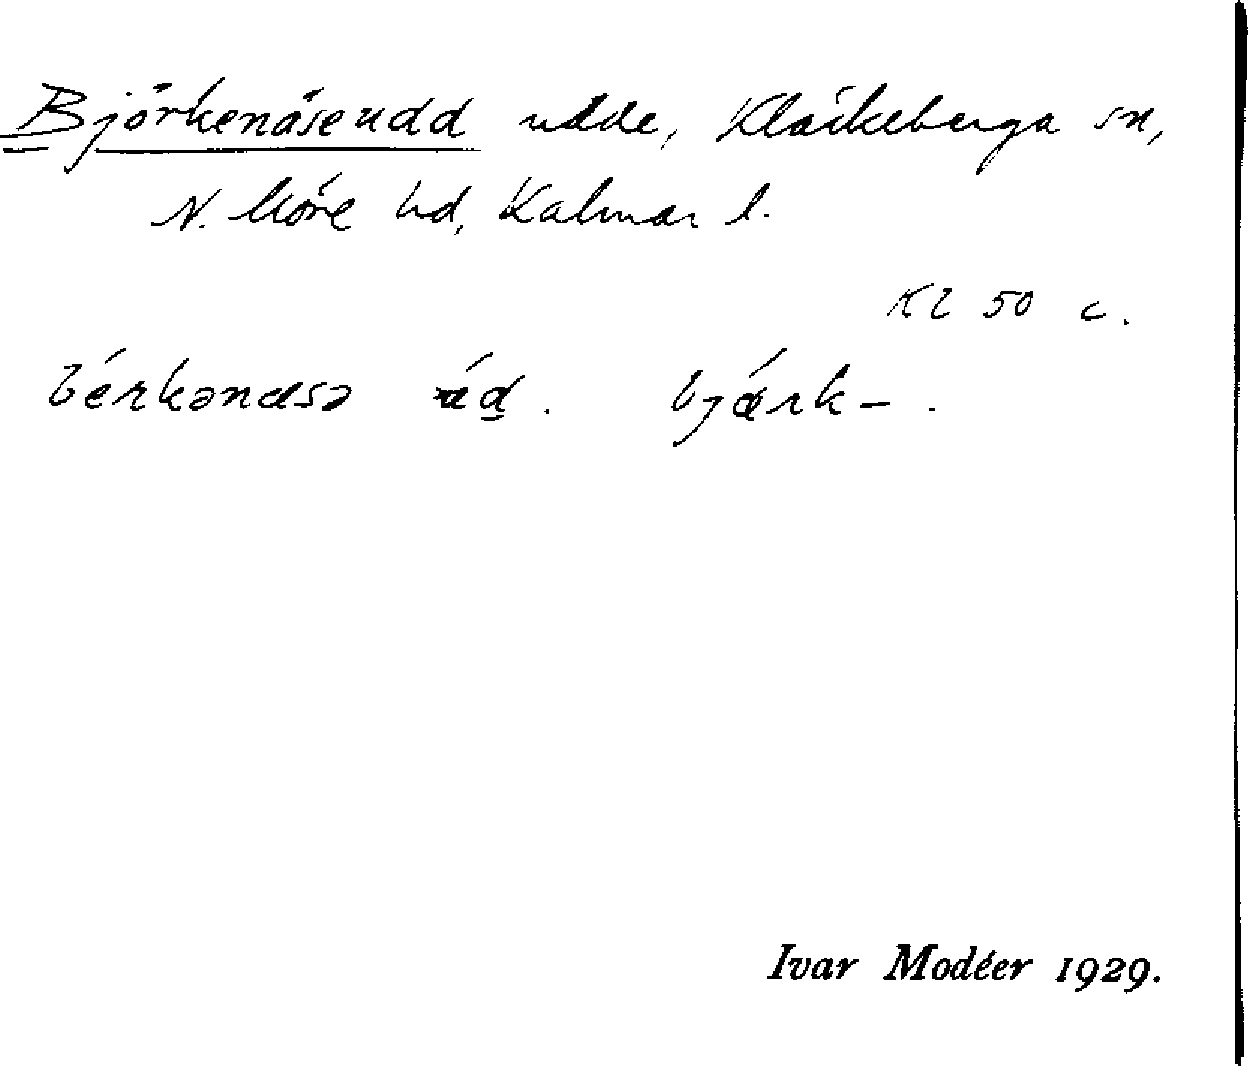 Björkenäseudd udde, Kläckeberga sn,
N. Möre hd, Kalmar l.
Kl 50 c.
bérkənɑsə ɑ́d̲. bjǽrk- .
Ivar Modéer 1929.